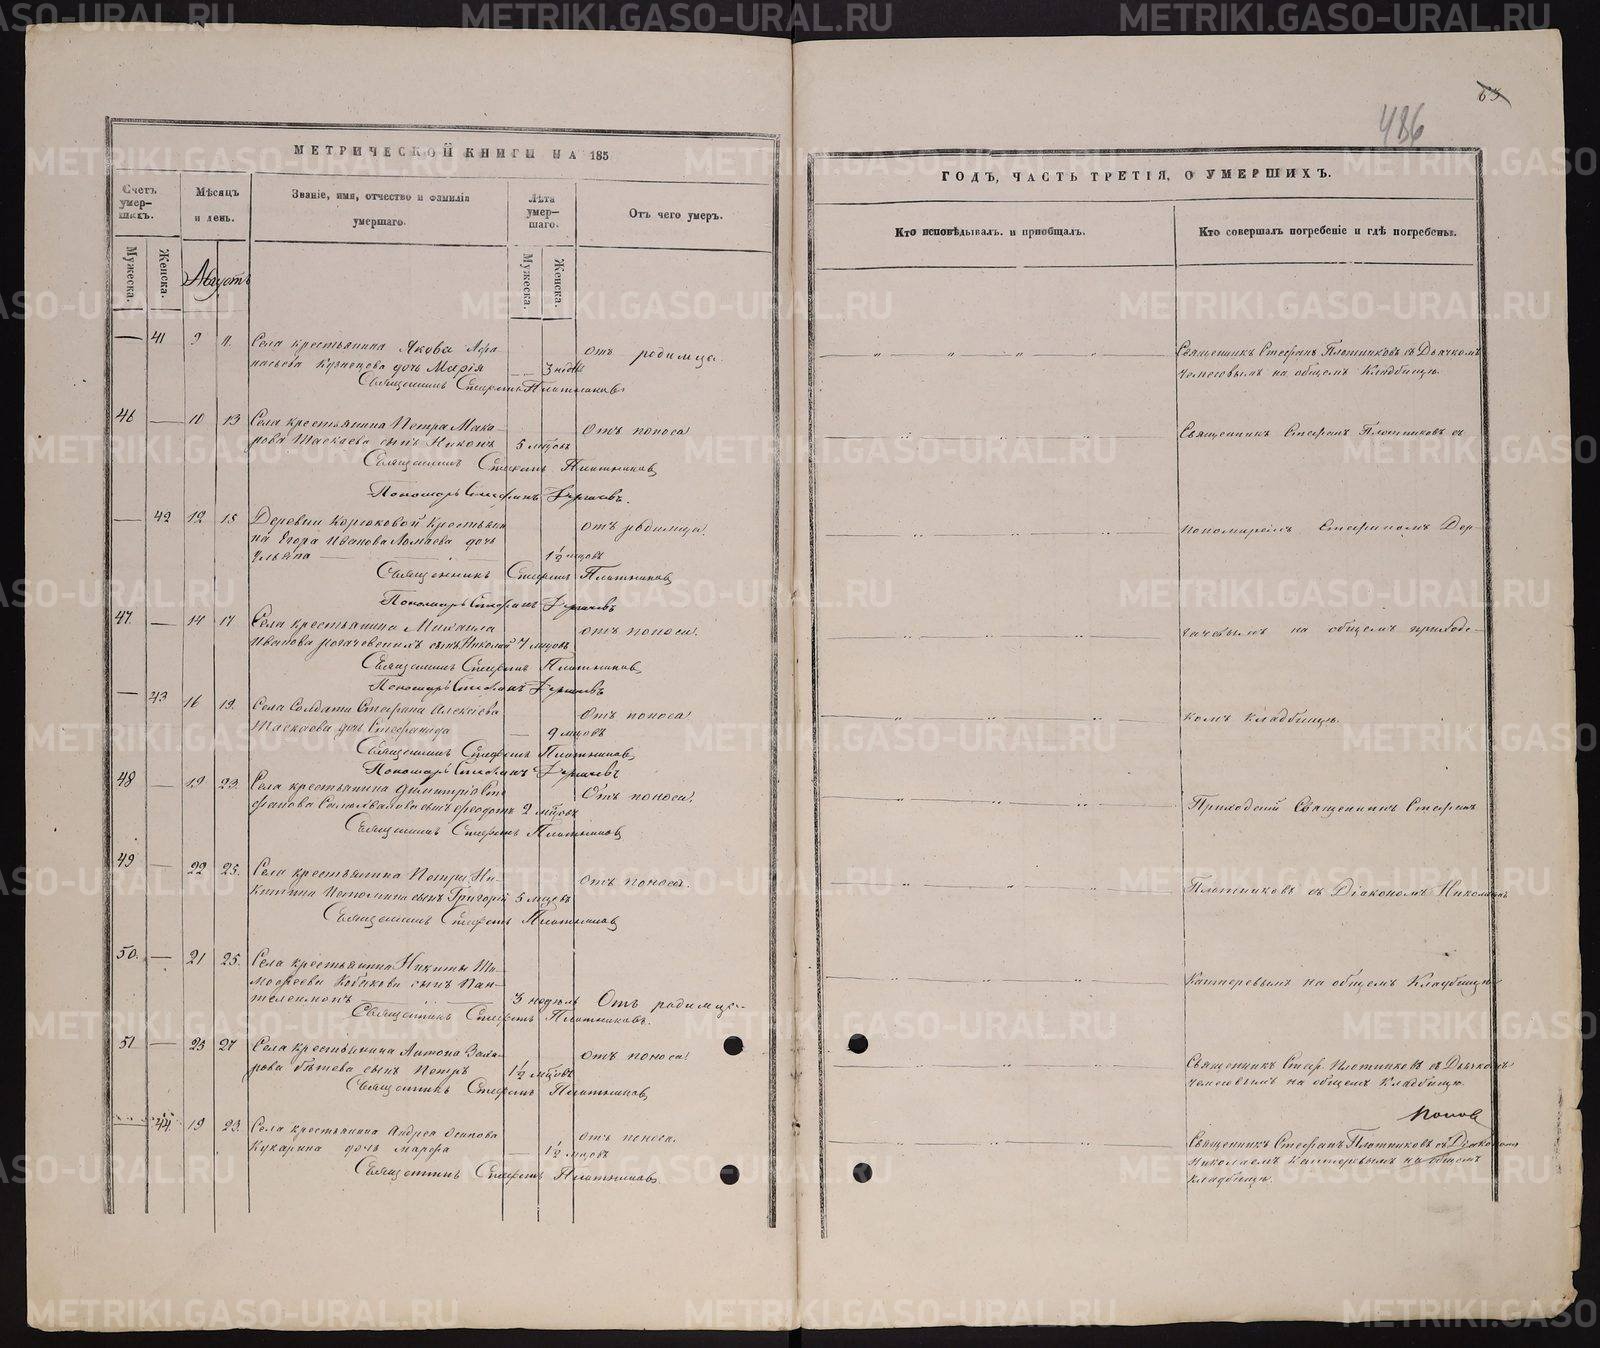 63
486
МЕТРИЧЕСКОЙ КНИГИ НА 185
ГОДЪ, ЧАСТЬ ТРЕТІЯ, О УМЕРШИХЪ.
Счетъ умер-шихъ.
Мѣсяцъ и день.
Званіе, имя, отчество и фамилія умершаго.
Лѣта умер-шаго.
Отъ чего умеръ.
Кто исповѣдывалъ и пріобщалъ.
Кто совершалъ погребеніе и гдѣ погребены.
Мужеска.
Женска.
Августъ
Мужеска.
Женска.
— 41 9 11. Села крестьянина Якова Афа-
насьева Кузнецова дочь Марія 3 нѣд отъ родимца.
Священникъ Стефанъ Плотниковъ
Священникъ Стефанъ Плотниковъ съ Дьячкомъ
на общемъ Кладбищѣ.
46 — 10 13 Села крестьянина Петра Мака-
рова Таскаева сынъ Никонъ 5 мцовъ Отъ поноса
Священникъ Стефанъ Плотниковъ
Пономарь Стефанъ Дергачевъ.
Священникъ Стефанъ Плотниковъ съ
— 42 12 15 Деревни Корюковой Крестьяни
на Егора Иванова дочь
Ульяна — 1½ мцовъ отъ родимца.
Священникъ Стефанъ Плотниковъ
Пономарь Стефанъ Дергачевъ
пономаремъ Стефаномъ Дер-
47. — 14 17 Села крестьянина Михаила
Иванова сынъ Николай 7 мцовъ отъ поноса.
Священникъ Стефанъ Плотниковъ
Пономарь Стефанъ Дергачевъ
гачевымъ на общемъ приходс-
— 43 16 19. Села Солдата Стефана Алексіева
Таскаева дочь Стефанида 9 мцовъ Отъ поноса
Священникъ Стефанъ Плотниковъ
Пономарь Стефанъ Дергачевъ
комъ Кладбищѣ.
48 — 19 23. Села крестьянина Димитрія Сте
фанова сынъ Феодотъ 2 мцовъ Отъ поноса.
Священникъ Стефанъ Плотниковъ
Приходскій Священникъ Стефанъ
49 — 22 25. Села крестьянина Петра Ни-
китина Истомина сынъ Григорій 5 мцевъ отъ поноса.
Священникъ Стефанъ Плотниковъ
Плотниковъ съ Діакономъ Николаемъ
50. — 21 25. Села крестьянина Никиты Ти-
моѳеева сынъ Пан-
телеимонъ 3 недѣль Отъ родимца.
Священникъ Стефанъ Плотниковъ.
на общемъ Кладбищѣ
51 — 23 27 Села крестьянина Антона Заха-
рова сынъ Петръ 1½ мцовъ отъ поноса.
Священникъ Стефанъ Плотниковъ
Священникъ Стеф. Плотниковъ съ Дьячкомъ
на общемъ Кладбищѣ.
Поповъ
44. 19 23. Села крестьянина Андрея Осипова
Кукарина дочь Марфа 1½ мцовъ отъ поноса.
Священникъ Стефанъ Плотниковъ
Священникъ Стефанъ Плотниковъ съ Діакономъ
Николаемъ на общемъ
Кладбищѣ.
METRIKI.GASO-URAL.RU